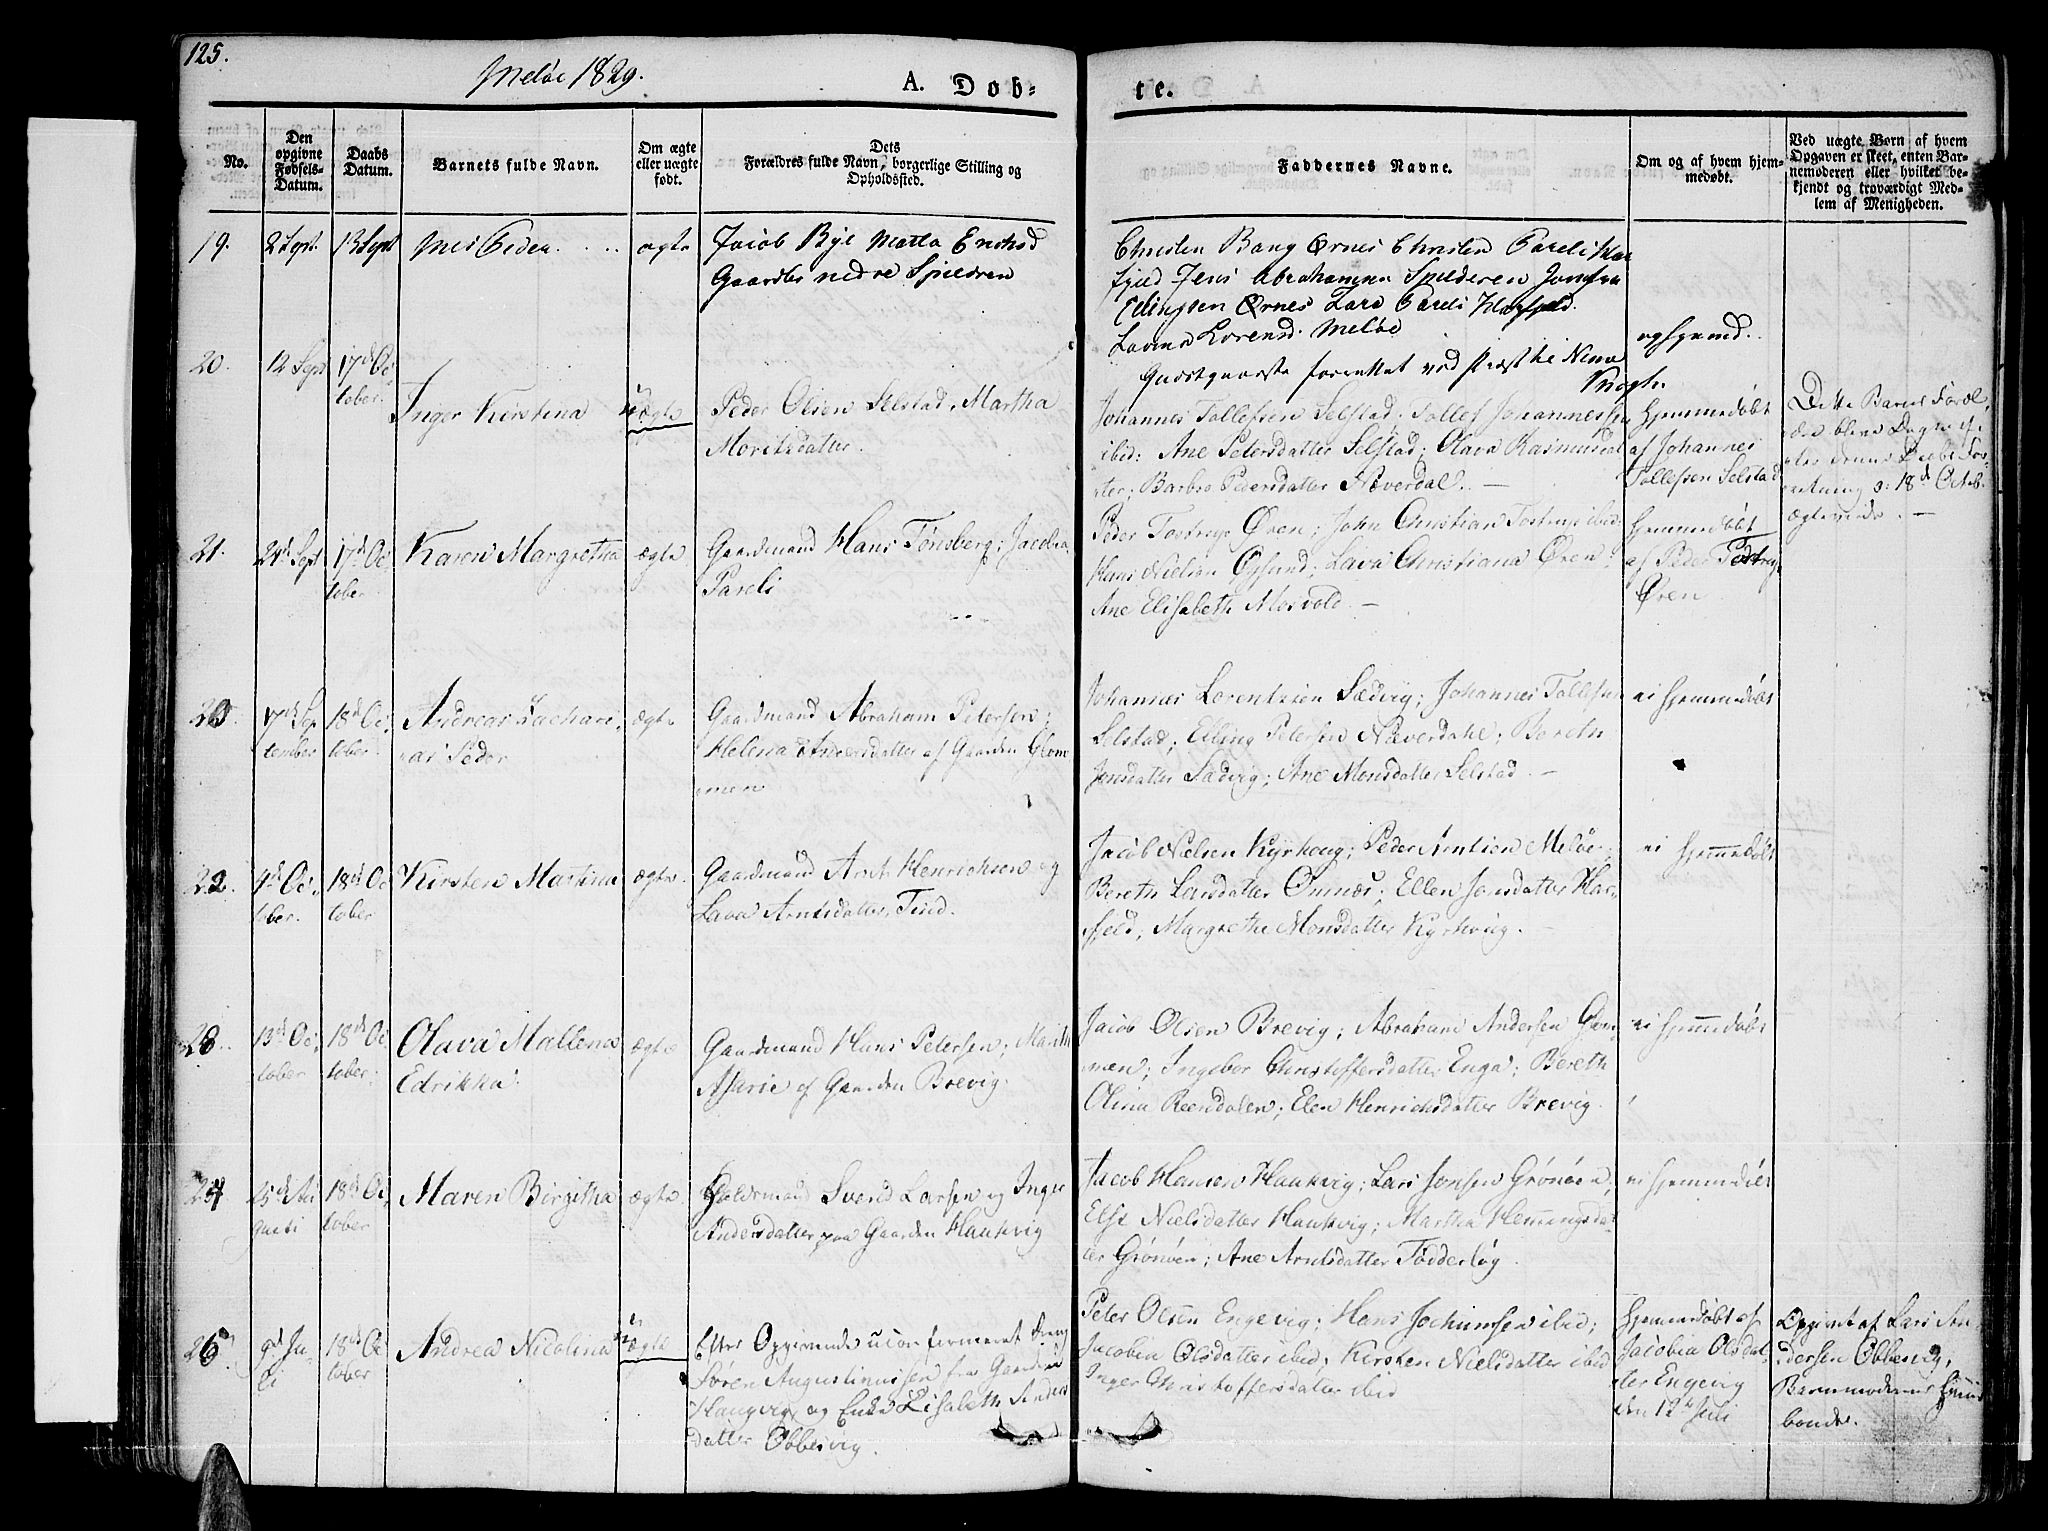 125.
Meløe 1829.
A. Døb-
te.
No.
Den opgivne Fødsels-Datum.
Daabs Datum.
Barnets fulde Navn.
Om ægte eller uægte født.
Dets Forældres fulde Navn, borgerlige Stilling og Opholdssted.
Faddernes Navne.
Om og af hvem hjem-medøbt.
Ved uægte Børn af hvem Opgaven er skeet, enten Bar-nemoderen eller hvilket be-kjendt og troværdigt Med-lem af Menigheden.
19.
2 Sept.
13 Sept
Peder
ægte
Jacob Bye Matta
Gaarden nedre Spildren
Christen Bang Ørnes Christen
Jens Abrahamsen Spilderen
Ellingsen Ørnes
Lorensd. Meløe
20.
12 Sept
17de Oc-
tober.
Inger Kirstina
uægte
Peder Olsen Selstad, Martha
Moritsdatter.
Johannes Tollefsen Selstad; Tollef Johannessen
ibid: Ane Petersdatter Selstad; Olava Rasmusdat
ter; Barbro Pedersdatter Næverdal. —
Hjemmedøbt
af Johannes
Tollefsen Selstad
Dette Barns Foræl
18de Octob.
ægteviede. —
21.
24de Sept
17de Oc-
tober
Karen Margretha
ægte
Gaardmand Hans Tønsberg; Jacobia
Pareli
Peder Tostrup Øren; John Christian Tostrup ibid:
Hans Nielsen Øysund; Lava Christiana Øren;
Ane Elisabeth Mosvold. —
Hjemmedøbt
af Peder Tostrup
Øren
17de Sep
tember
18de Oc-
tober
Andreas Zachari
as Peder
ægte
Gaardmand Abraham Petersen;
Helena Andersdatter af Gaarden Glom
men
Johannes Lorentzen Sædvig; Johannes Tollefsen
Selstad; Elling Petersen Næverdahl; Bereth
Jonsdatter Sædvig; Ane Monsdatter Selstad. —
ei hjemmedøbt
22.
4de Oc-
tober.
18de Oc
tober
Kirsten Martina
ægte
Gaardmand Arnt Henrichsen og
Lava Arntsdatter, Tind.
Jacob Nielsen Kyrhoug; Peder Arntsen Meløe;
Bereth Larsdatter Ønnæs; Ellen Jonsdatter Har-
fjeld, Margrethe Monsdatter Kyrkvig. —
ei hjemmedøbt
23.
13de Oc-
tober
18de Oc
tober.
Olava Mallena
Edrikka
ægte
Gaardmand Hans Petersen; Marith
Marie af Gaarden Brevig.
Jacob Olsen Brevig; Abraham Andersen Glom-
men; Ingebor Christoffersdatter Enga; Bereth
Olina Reendalen; Elen Henrichsdatter Brevig.
ei hjemmedøbt
24
25de Au
gusti
18de Oc-
tober
Maren Birgitha
ægte
Svend Larsen og Inger
Andersdatter paa Gaarden Haukvig
Jacob Hansen Haukvig; Lars Jonsen Grønøen,
Else Nielsdatter Haukvig; Martha Hemmingsdat
ter Grønøen; Ane Arntsdatter Tødderløg
ei hjemmedøbt
26
9de Ju-
li
18de Oc
tober
Andrea Nicolina
uægte
Efter Opgivende uconfirmeret Dreng
Søren Augustinussen fra Gaarden
Haugvig, og Enke Elisabeth Anders
datter Obbesvig.
Peter Olsen Engevig; Hans Jochumsen ibid;
Jacobia Olsdatter ibid; Kirsten Nielsdatter ibid
Inger Christoffersdatter ibid
Hjemmedøbt af
Jacobia Olsdat
ter Engevig
den 12te Juli
Opgivet af Lars An
dersen Obbesvig,
Barnemoderens Huus
bonde.